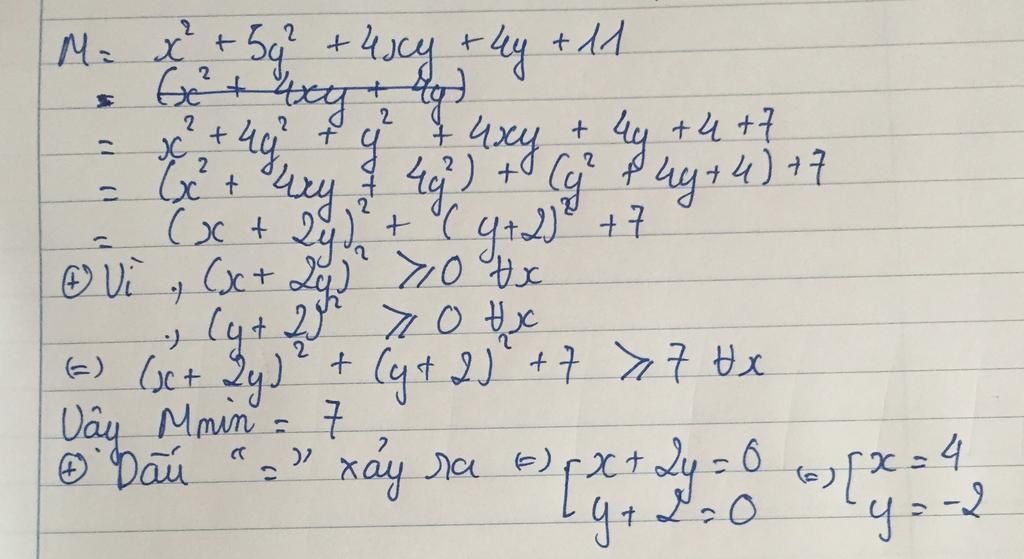 M = x² + 5y² + 4xy + 4y + 11
= (x² + 4xy + 4y)
= x² + 4y² + y² + 4xy + 4y + 4 + 7
= (x² + 4xy + 4y²) + (y² + 4y + 4) + 7
= (x + 2y)² + (y + 2)² + 7
⊕ Vì ., (x + 2y)² ⩾ 0 ∀x
., (y + 2)² ⩾ 0 ∀x
(=) (x + 2y)² + (y + 2)² + 7 ⩾ 7 ∀x
Vậy Mmin = 7
⊕ Dấu “=” xảy ra (=) [ x + 2y = 0 (=) [ x = 4
y + 2 = 0 y = -2